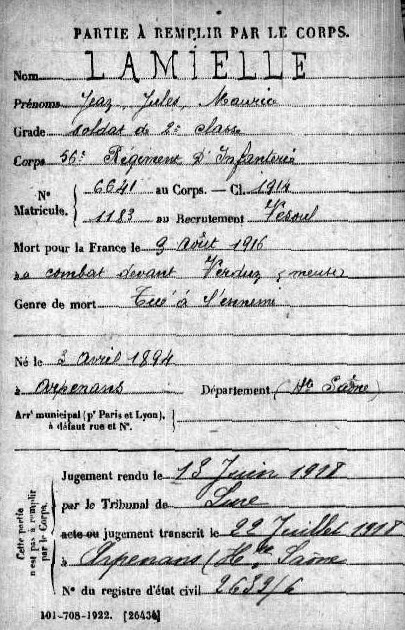 PARTIE À REMPLIR PAR LE CORPS.
Nom LAMIELLE
Prénoms Jean Jules Maurice
Grade soldat de 2e classe
Corps 56e Régiment d'Infanterie
N° Matricule. 6641 au Corps. — Cl. 1914
1183 au Recrutement Vesoul
Mort pour la France le 9 Août 1916
à combat devant Verdun (meuse)
Genre de mort Tué à l'ennemi
Né le 3 avril 1894
à Arpenans Département (Hte Saône)
Arrt municipal (pr Paris et Lyon),
à défaut rue et N°.
Cette partie n'est pas à remplir par le Corps.
Jugement rendu le 13 Juin 1918
par le Tribunal de Lure
acte ou jugement transcrit le 22 Juillet 1918
à Arpenans (Hte Saône
N° du registre d'état civil 2632/6
101-708-1922. [26434]